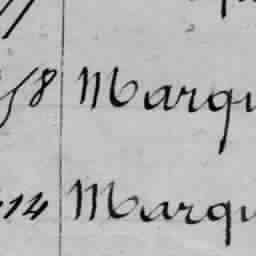 58 Marqu
14 Marqu